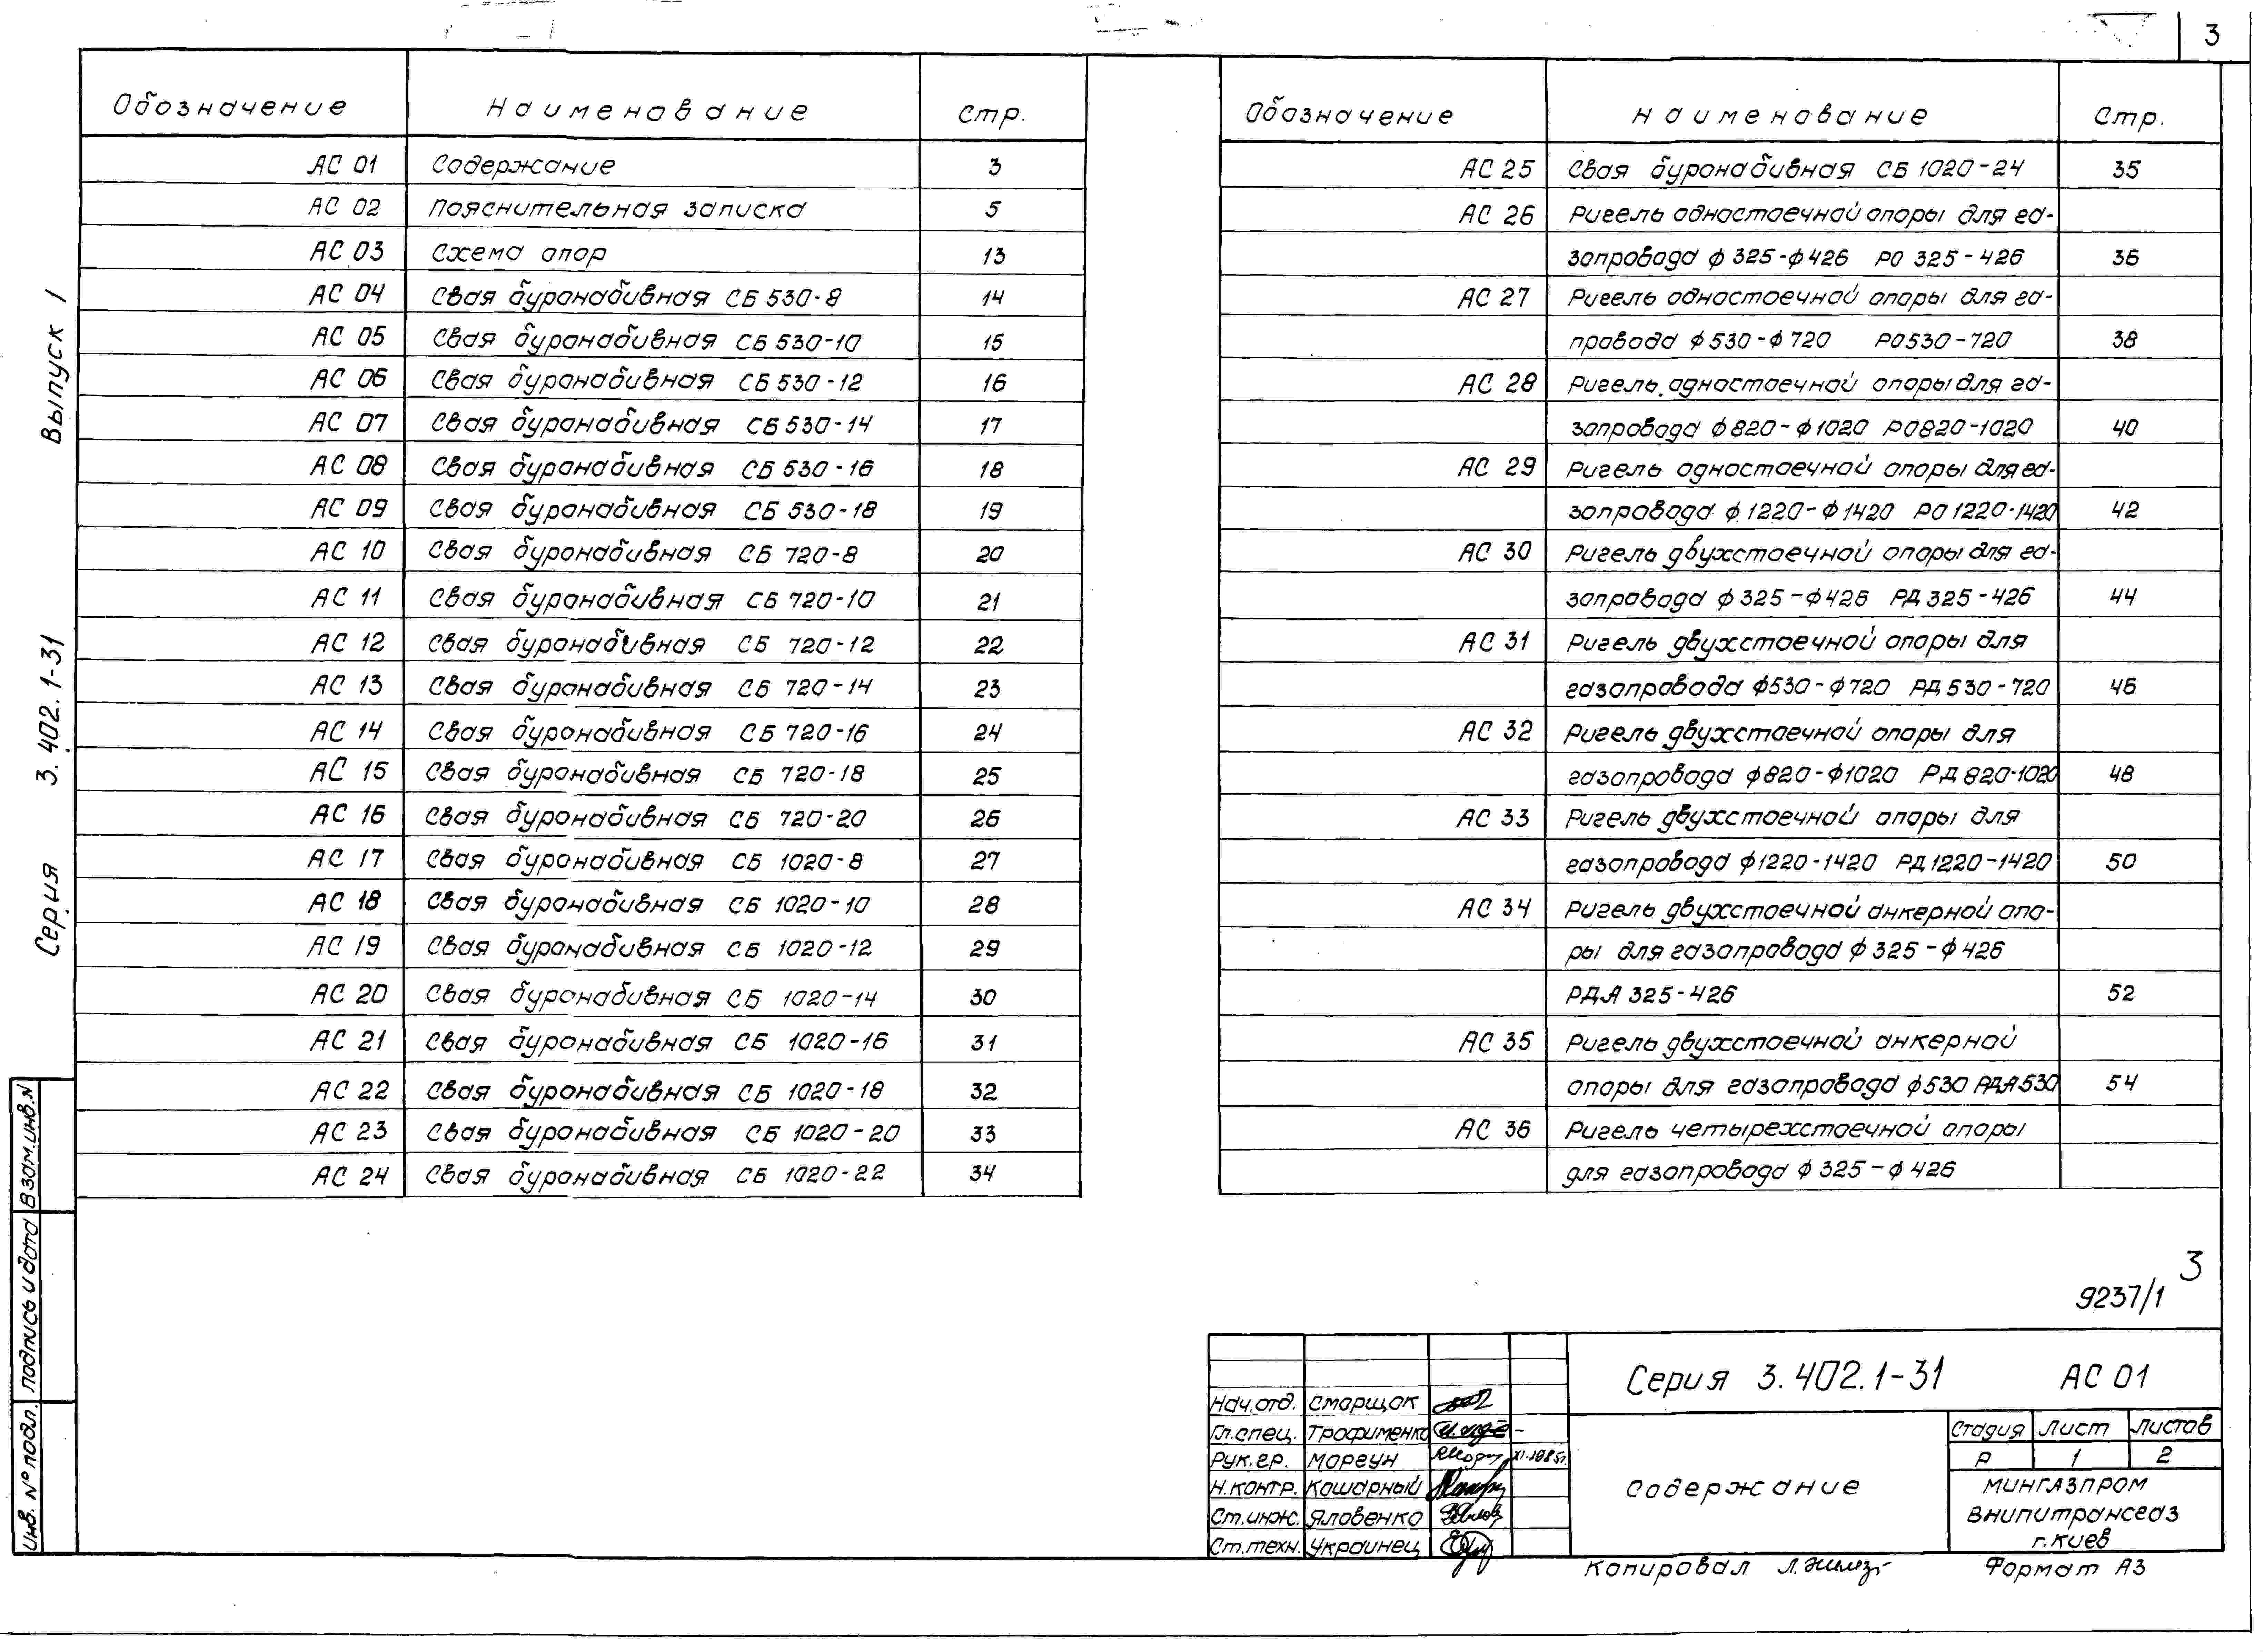 3
Обозначение Наименование Стр.
АС 01 Содержание 3
АС 02 Пояснительная записка 5
АС 03 Схема опор 13
АС 04 Свая буронабивная СБ 530-8 14
АС 05 Свая буронабивная СБ 530-10 15
АС 06 Свая буронабивная СБ 530-12 16
АС 07 Свая буронабивная СБ 530-14 17
АС 08 Свая буронабивная СБ 530-16 18
АС 09 Свая буронабивная СБ 530-18 19
АС 10 Свая буронабивная СБ 720-8 20
АС 11 Свая буронабивная СБ 720-10 21
АС 12 Свая буронабивная СБ 720-12 22
АС 13 Свая буронабивная СБ 720-14 23
АС 14 Свая буронабивная СБ 720-16 24
АС 15 Свая буронабивная СБ 720-18 25
АС 16 Свая буронабивная СБ 720-20 26
АС 17 Свая буронабивная СБ 1020-8 27
АС 18 Свая буронабивная СБ 1020-10 28
АС 19 Свая буронабивная СБ 1020-12 29
АС 20 Свая буронабивная СБ 1020-14 30
АС 21 Свая буронабивная СБ 1020-16 31
АС 22 Свая буронабивная СБ 1020-18 32
АС 23 Свая буронабивная СБ 1020-20 33
АС 24 Свая буронабивная СБ 1020-22 34
Обозначение Наименование Стр.
АС 25 Свая буронабивная СБ 1020-24 35
АС 26 Ригель одностоечной опоры для га-
зопровода ф 325-ф426 РО 325-426 36
АС 27 Ригель одностоечной опоры для га-
провода ф530-ф720 РО530-720 38
АС 28 Ригель одностоечной опоры для га-
зопровода ф820-ф1020 РО820-1020 40
АС 29 Ригель одностоечной опоры для га-
зопровода ф 1220-ф1420 РО 1220-1420 42
АС 30 Ригель двухстоечной опоры для га-
зопровода ф325-ф426 РД 325-426 44
АС 31 Ригель двухстоечной опоры для
газопровода ф530-ф720 РД 530-720 46
АС 32 Ригель двухстоечной опоры для
газопровода ф820-ф1020 РД 820-1020 48
АС 33 Ригель двухстоечной опоры для
газопровода ф1220-1420 РД 1220-1420 50
АС 34 Ригель двухстоечной анкерной опо-
ры для газопровода ф 325-ф 426
РДА 325-426 52
АС 35 Ригель двухстоечной анкерной
опоры для газопровода ф530 РДА 530 54
АС 36 Ригель четырехстоечной опоры
для газопровода ф 325-ф 426
Серия 3.402.1-31 Выпуск 1
Инв. № подл. Подпись и дата Взам.инв.N
3
9237/1
Нач.отд. Сморщок
Гл.спец. Трофименко
Рук.гр. Моргун XI.1985г.
Н.контр. Кошарный
Ст.инж. Яловенко
Ст.техн. Украинец
Серия 3.402.1-31 АС 01
Содержание
Стадия Лист Листов
Р 1 2
МИНГАЗПРОМ
ВНИПИтрансгаз
г.Киев
Копировал
Формат А3